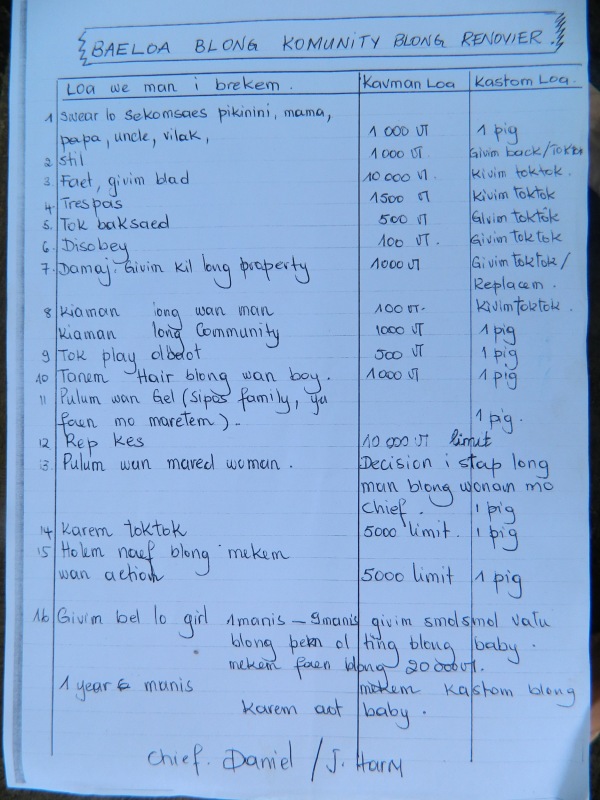 BAELOA BLONG KOMUNITY BLONG RENOVIER.
Loa we man i brekem. Kavman Loa Kastom Loa.
1 Swear lo Sekomsaes pikinini, mama,
papa, uncle, vilak, 1 000 VT 1 pig
2 Stil 1 000 VT. Givim back/Toktok
3. Faet, givim blad 10 000 VT. Kivim toktok.
4. Trespas 1500 VT Kivim Toktok
5. Tok baksaed 500 VT Givim toktok
6. Disobey 100 VT. Givim toktok
7. Damaj. Givim kil long property 1000 VT Givim toktok/
Replacem.
8 Kiaman long wan man 100 VT. Kivim toktok.
Kiaman long Community 1000 VT 1 pig
9 Tok play olbaot 500 VT 1 pig
10 Tanem Hair blong wan boy. 1000 VT 1 pig
11 Pulum wan Gel (Sipos family, ya
faen mo maretem). 1 pig.
12 Rep kes 10 000 VT limit
13. Pulum wan mared woman. Decision i stap long
man blong woman mo
chief. 1 pig
14 Karem toktok 5000 limit. 1 pig
15 Holem naef blong mekem
wan action 5000 limit 1 pig
16 Givim bel lo girl 1manis - 9manis givim smolsmol vatu
blong pem ol ting blong baby.
mekem faen blong 20 000 VT.
1 year 6 manis mekem Kastom blong
Karem aot baby.
Chief. Daniel / J. Harry